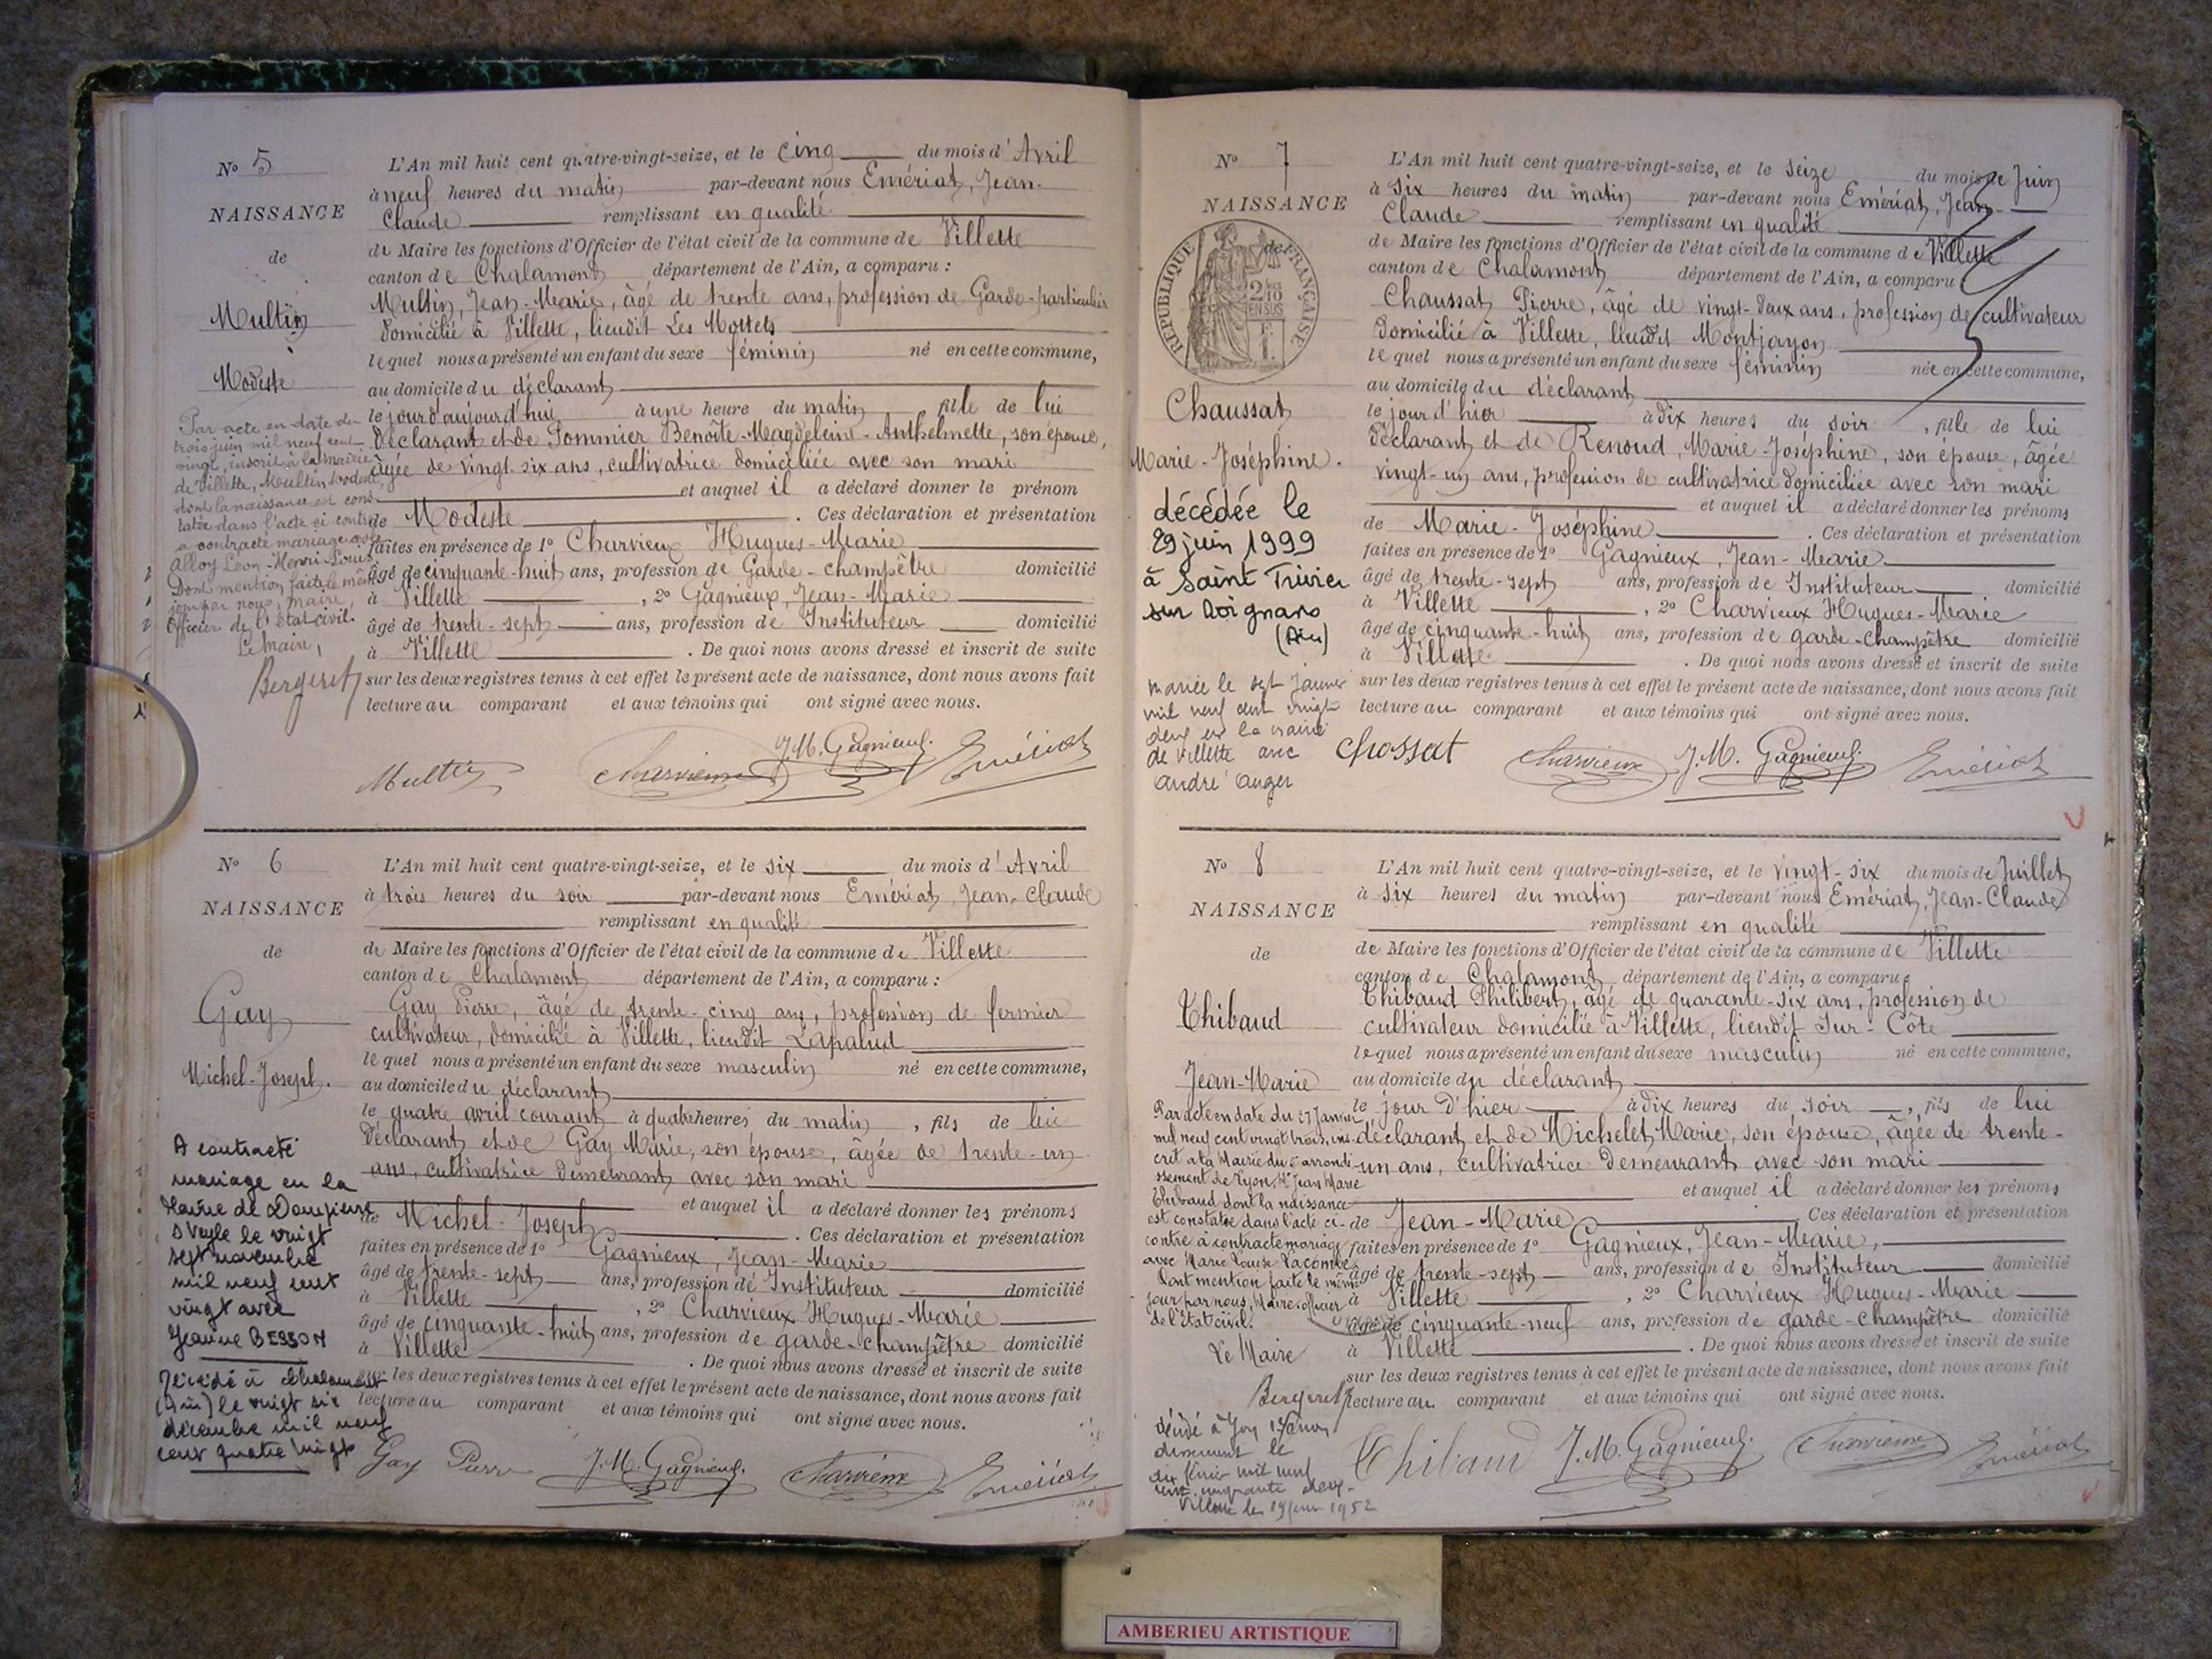 No 5
NAISSANCE
de
Multin
Modeste
Par acte en date du
trois juin mil neuf cent
vingt, inscrit à la mairie
de Villette, Multin Modeste,
dont la naissance est cons-
tatée dans l'acte ci-contre
a contracté mariage avec
Alloy Léon-Henri-Louis
Dont mention faite le même
jour par nous, maire,
Officier de l'Etat civil.
Le Maire,
Bergeret
L'An mil huit cent quatre-vingt-seize, et le cinq du mois d'Avril
à neuf heures du matin par-devant nous Emériat, Jean-
Claude remplissant en qualité
de Maire les fonctions d'Officier de l'état civil de la commune de Villette
canton de Chalamont département de l'Ain, a comparu :
Multin, Jean-Marie, âgé de trente ans, profession de Garde-particulier
domicilié à Villette, lieudit Les Mottets
lequel nous a présenté un enfant du sexe féminin né en cette commune,
au domicile du déclarant
le jour d'aujourd'hui à une heure du matin fille de lui
déclarant et de Pommier Benoîte-Magdeleine-Anthelmette, son épouse,
âgée de vingt-six ans, cultivatrice domiciliée avec son mari
et auquel il a déclaré donner le prénom
de Modeste. Ces déclaration et présentation
faites en présence de 1° Charvieux Hugues-Marie
âgé de cinquante-huit ans, profession de Garde-champêtre domicilié
à Villette, 2° Gagnieux, Jean-Marie
âgé de trente-sept ans, profession de Instituteur domicilié
à Villette. De quoi nous avons dressé et inscrit de suite
sur les deux registres tenus à cet effet le présent acte de naissance, dont nous avons fait
lecture au comparant et aux témoins qui ont signé avec nous.
Multin Charvieux J.M. Gagnieux Emériat
No 6
NAISSANCE
de
Gay
Michel-Joseph.
A contracté
mariage en la
Mairie de Dompierre
s/Veyle le vingt
sept novembre
mil neuf cent
vingt avec
Jeanne BESSON
Décédé à Chalamont
(Ain) le vingt six
décembre mil neuf
cent quatre vingt
L'An mil huit cent quatre-vingt-seize, et le six du mois d'Avril
à trois heures du soir par-devant nous Emériat, Jean-Claude
remplissant en qualité
de Maire les fonctions d'Officier de l'état civil de la commune de Villette
canton de Chalamont département de l'Ain, a comparu :
Gay Pierre, âgé de trente-cinq ans, profession de fermier
cultivateur, domicilié à Villette, lieudit Lapalud
lequel nous a présenté un enfant du sexe masculin né en cette commune,
au domicile du déclarant
le quatre avril courant à quatre heures du matin, fils de lui
déclarant et de Gay Marie, son épouse, âgée de trente-un
ans, cultivatrice demeurant avec son mari
et auquel il a déclaré donner les prénoms
de Michel-Joseph. Ces déclaration et présentation
faites en présence de 1° Gagnieux, Jean-Marie
âgé de trente-sept ans, profession de Instituteur domicilié
à Villette, 2° Charvieux Hugues-Marie
âgé de cinquante-huit ans, profession de garde-champêtre domicilié
à Villette. De quoi nous avons dressé et inscrit de suite
sur les deux registres tenus à cet effet le présent acte de naissance, dont nous avons fait
lecture au comparant et aux témoins qui ont signé avec nous.
Gay Pierre J.M. Gagnieux Charvieux Emériat
No 7
NAISSANCE
de
RÉPUBLIQUE FRANÇAISE
2/10 EN SUS
Chaussat
Marie-Joséphine.
décédée le
29 juin 1999
à Saint Trivier
sur Moignans
(Ain)
mariée le sept Janvier
mil neuf cent vingt
deux en la mairie
de Villette avec
André Auger
L'An mil huit cent quatre-vingt-seize, et le seize du mois de Juin
à six heures du matin par-devant nous Emériat, Jean-
Claude remplissant en qualité
de Maire les fonctions d'Officier de l'état civil de la commune de Villette
canton de Chalamont département de l'Ain, a comparu
Chaussat Pierre, âgé de vingt-deux ans, profession de cultivateur
domicilié à Villette, lieudit Montjayon
lequel nous a présenté un enfant du sexe féminin née en cette commune,
au domicile du déclarant
le jour d'hier à dix heures du soir, fille de lui
déclarant et de Renoud, Marie-Joséphine, son épouse, âgée
vingt-un ans, profession de cultivatrice domiciliée avec son mari
et auquel il a déclaré donner les prénoms
de Marie-Joséphine. Ces déclaration et présentation
faites en présence de 1° Gagnieux, Jean-Marie
âgé de trente-sept ans, profession de Instituteur domicilié
à Villette, 2° Charvieux Hugues-Marie
âgé de cinquante-huit ans, profession de garde-champêtre domicilié
à Villette. De quoi nous avons dressé et inscrit de suite
sur les deux registres tenus à cet effet le présent acte de naissance, dont nous avons fait
lecture au comparant et aux témoins qui ont signé avec nous.
Chossat Charvieux J.M. Gagnieux Emériat
No 8
NAISSANCE
de
Thibaud
Jean-Marie
Par acte en date du 27 Janvier
mil neuf cent vingt trois, ins-
crit à la Mairie du arrondi-
ssement de Lyon, Mr Jean Marie
Thibaud dont la naissance
est constatée dans l'acte ci-
contre a contracté mariage
avec Marie Louise Lacombe
Dont mention faite le même
jour par nous, Maire officier
de l'état civil.
Le Maire
Bergeret
décédé à Lyon
arrondissement le
dix février mil neuf
cent cinquante deux
Villette le 19 févr 1952
L'An mil huit cent quatre-vingt-seize, et le vingt-six du mois de Juillet
à six heures du matin par-devant nous Emériat, Jean-Claude
remplissant en qualité
de Maire les fonctions d'Officier de l'état civil de la commune de Villette
canton de Chalamont département de l'Ain, a comparu
Thibaud Philibert, âgé de quarante-six ans, profession de
cultivateur domicilié à Villette, lieudit Sur-Côte
lequel nous a présenté un enfant du sexe masculin né en cette commune,
au domicile du déclarant
le jour d'hier à dix heures du soir, fils de lui
déclarant et de Michelet, Marie, son épouse, âgée de trente-
un ans, cultivatrice demeurant avec son mari
et auquel il a déclaré donner les prénoms
de Jean-Marie Ces déclaration et présentation
faites en présence de 1° Gagnieux, Jean-Marie,
âgé de trente-sept ans, profession de Instituteur domicilié
à Villette, 2° Charvieux Hugues-Marie
âgé de cinquante-neuf ans, profession de garde-champêtre domicilié
à Villette. De quoi nous avons dressé et inscrit de suite
sur les deux registres tenus à cet effet le présent acte de naissance, dont nous avons fait
lecture au comparant et aux témoins qui ont signé avec nous.
Thibaud J.M. Gagnieux Charvieux Emériat
AMBERIEU ARTISTIQUE